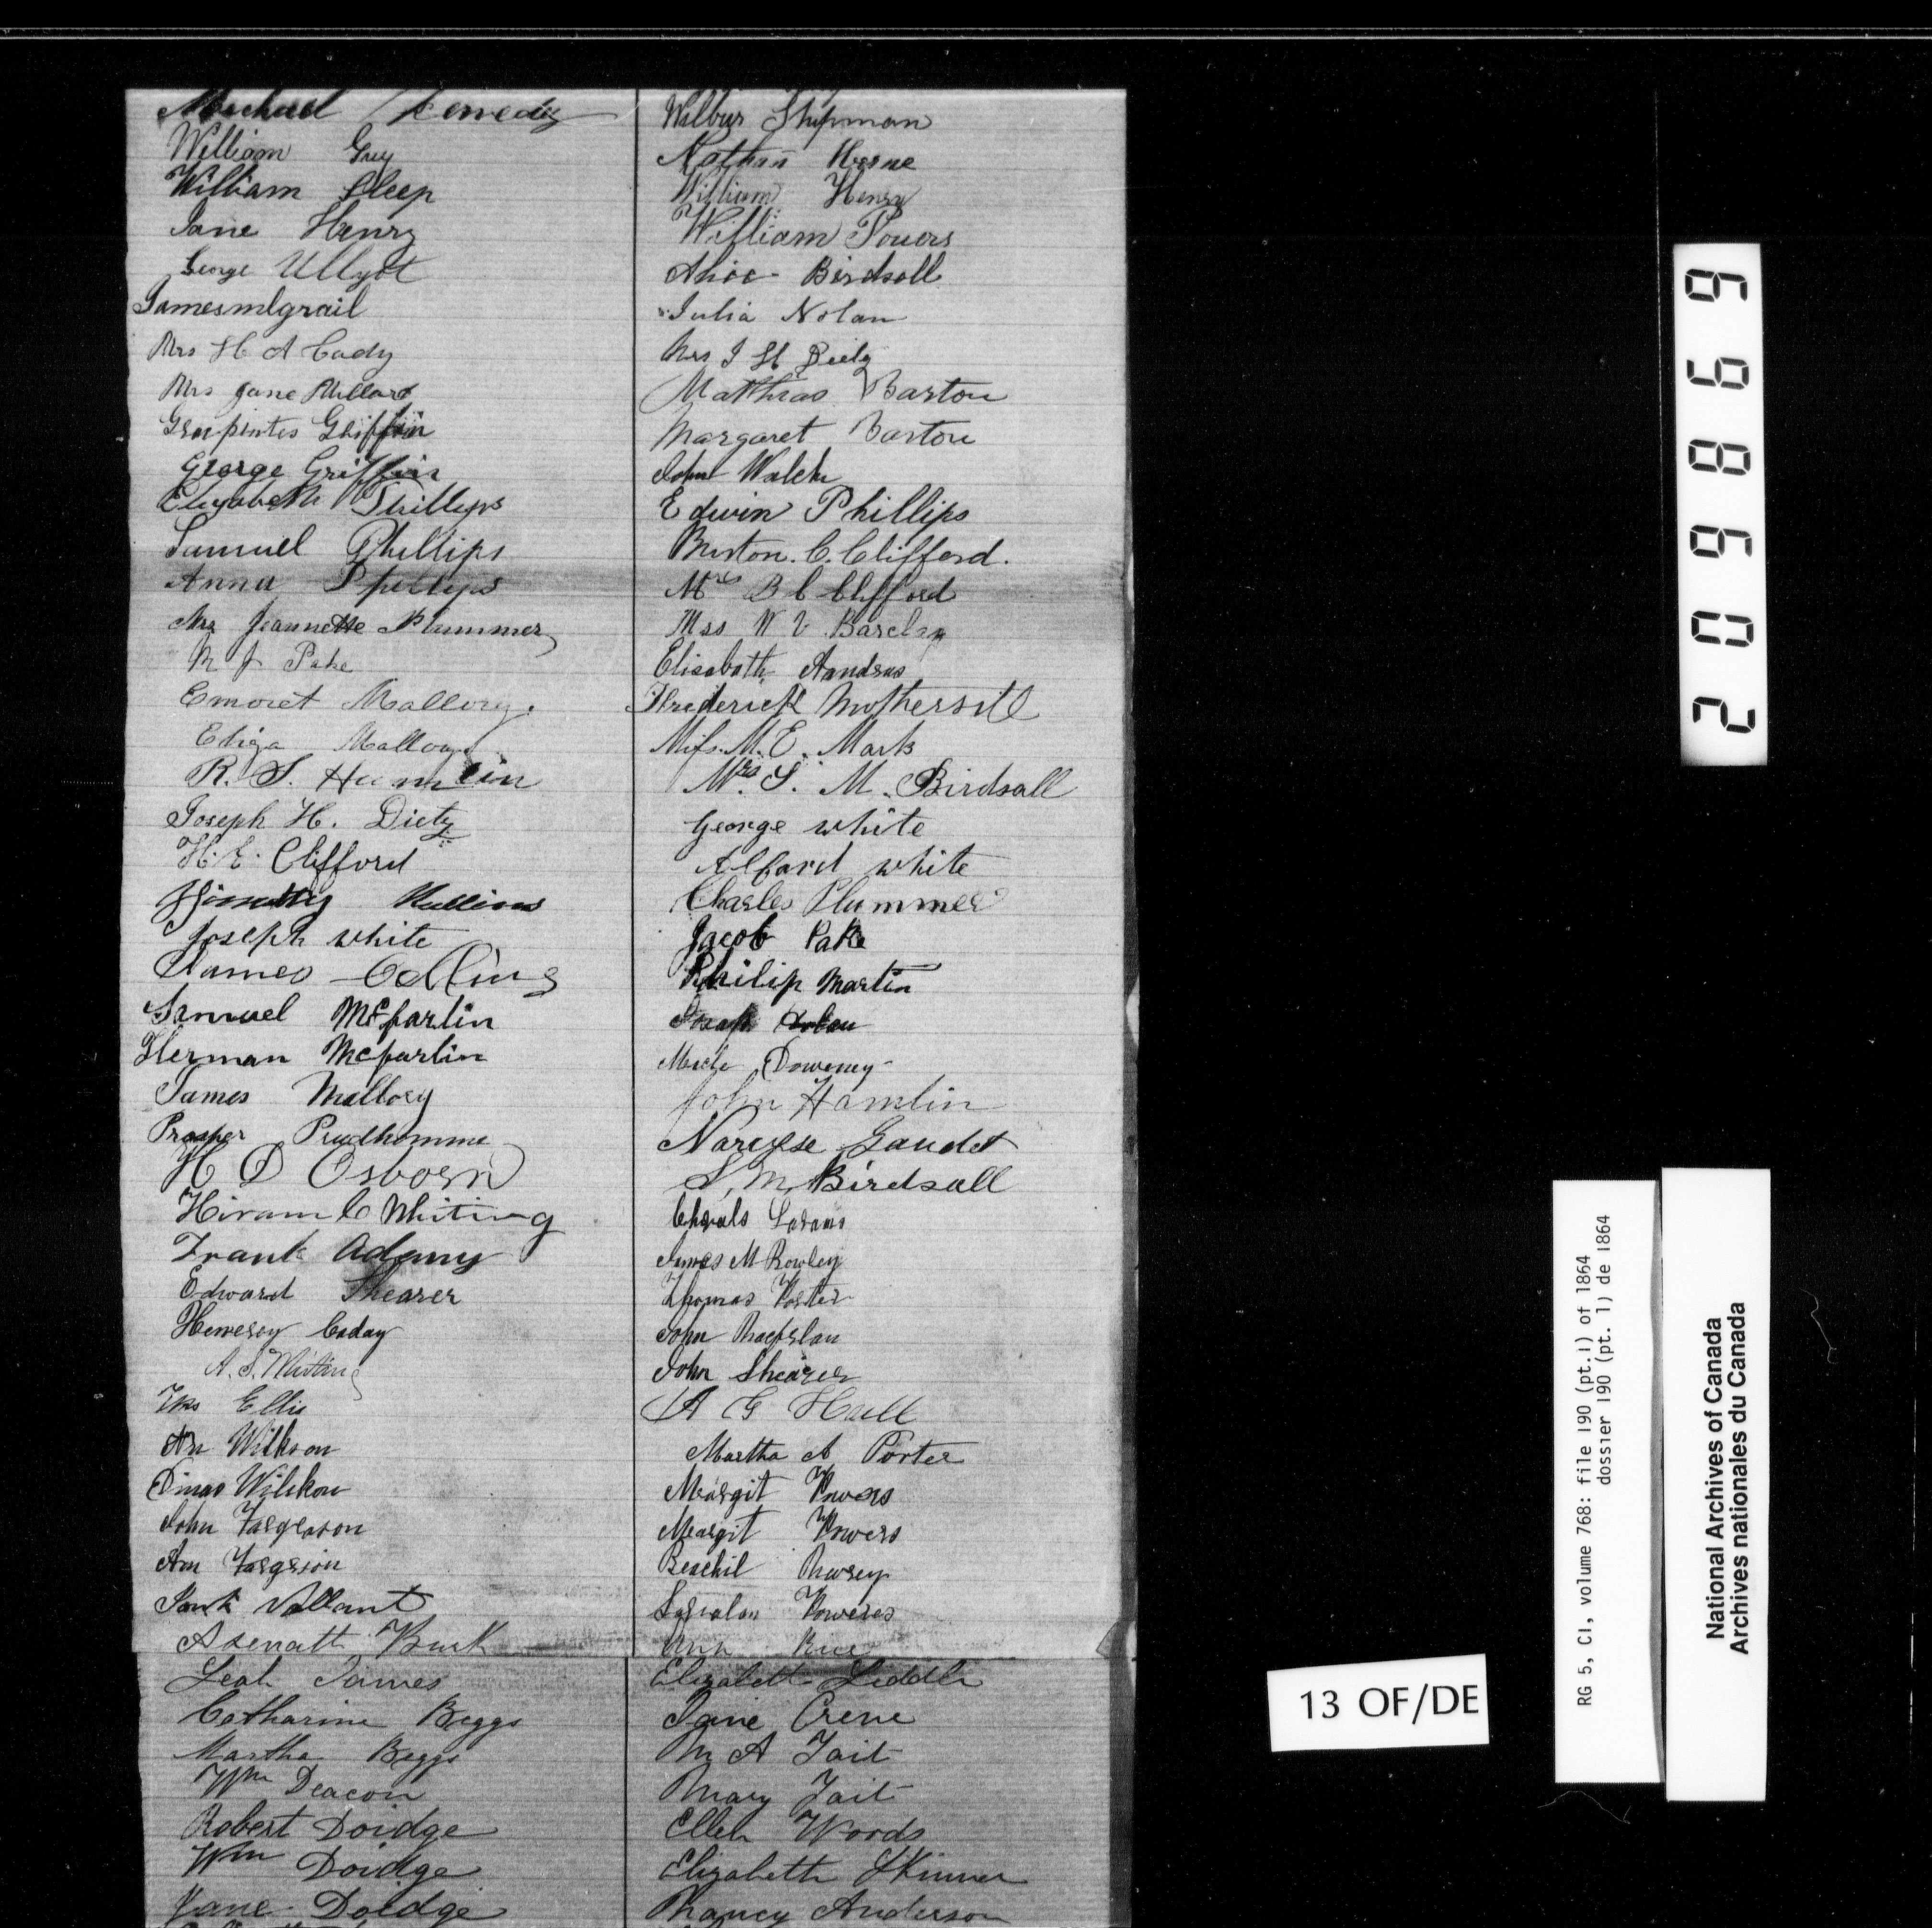 Michael Kennedy
William Guy
William Sleep
Jane Henry
George Ullyot
James mcgrail
Mrs H A Cady
Mrs Jane Millard
Griffin
George Griffin
Elizabeth Phillips
Samuel Phillips
Anna Phillips
Mrs Jeannette Plummer
M J Pake
Emoret Mallory.
Eliza Mallory
R. S. Hamlin
Joseph H. Dietz
H. E. Clifford
Timothy Mullins
Joseph white
James Collins
Samuel Mcparlin
Herman Mcparlin
James Mallory
Prosper Prudhomme
H D Osborn
Hiram C Whiting
Frank Adamy
Edward Shearer
Cady
A. S. Whiting
Ellis
An Wilkson
Wilkson
John
An
Vallant
Asenath Burk
Leah James
Catharine Beggs
Martha Beggs
Wm Deacon
Robert Doidge
Wm Doidge
Jane Doidge
Wilbur Shipman
Nathan Herne
William Henry
William Powers
Alice Birdsall
Julia Nolan
Mrs J H
Matthias Barton
Margaret Barton
John Walch
Edwin Phillips
Burton. C. Clifford.
Mrs B C Clifford
Mrs W V Barclay
Elisabath Aandrus
Frederick Mothersill
Miss. M. E. Mark
Mrs S. M. Birdsall
George white
Alford white
Charles Plummer
Jacob Pake
Philip Martin
Joseph
Downey
John Hamlin
Narcysse Gaudet
S, M, Birdsall
James M Rowley
Thomas Porter
John
John Shearer
A G Hull
Martha A Porter
Margit Powers
Margit Powers
Powers
Ann Rice
Elizabeth Liddle
Jane Crene
M A Tait
Mary Tait
Ellen Woods
Elizabeth Skinner
Nancy Anderson
209869
13 OF/DE
RG 5, C1, volume 768: file 190 (pt.1) of 1864
dossier 190 (pt. 1) de 1864
National Archives of Canada
Archives nationales du Canada